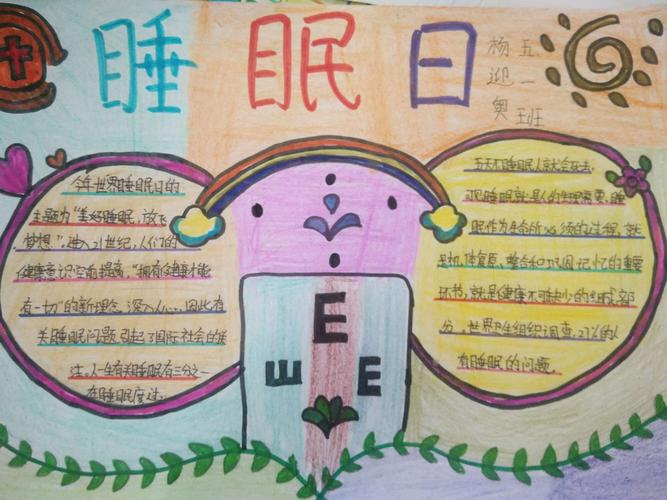 睡眠日
杨 五
迎 一
奥 班
今年世界睡眠日的
主题为“美好睡眠，放飞
梦想”，进入21世纪，人们的
健康意识空前提高，“拥有健康才能
有一切”的新理念，深入人心，因此有
关睡眠问题引起了国际社会的关
注，人一生有睡眠有三分之一
在睡眠度过
五天不睡眠人就会死去，
睡眠就是人的生理需要，睡
眠作为生命所必须的过程，就
是机体复原、整合和巩固记忆的重要
环节，就是健康不可缺少的组成部
分，世界卫生组织调查，27%的人
有睡眠的问题。
E
E
E